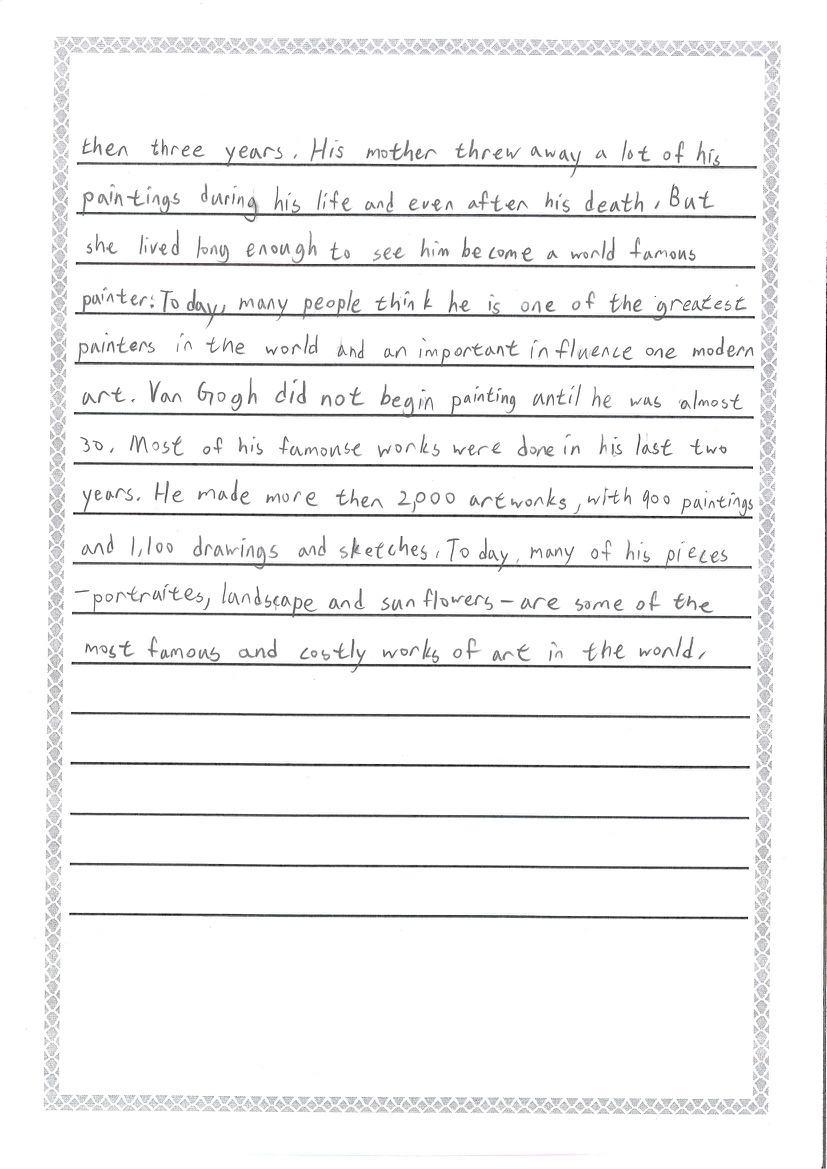 then three years. His mother threw away a lot of his
paintings during his life and even after his death. But
she lived long enough to see him become a world famous
painter. Today, many people think he is one of the greatest
painters in the world and an important influence one modern
art. Van Gogh did not begin painting until he was almost
30. Most of his famouse works were done in his last two
years. He made more then 2,000 artworks, with 900 paintings
and 1,100 drawings and sketches. Today, many of his pieces
-portraites, landscape and sunflowers - are some of the
most famous and costly works of art in the world.